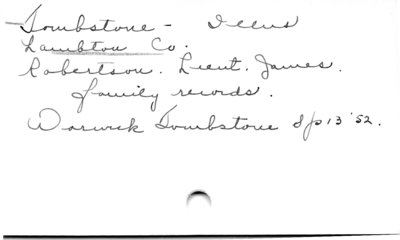 Tombstone - Illus
Lambton Co.
Robertson. Lieut. James.
family records.
Warwick Tombstone S/p 13 '52.